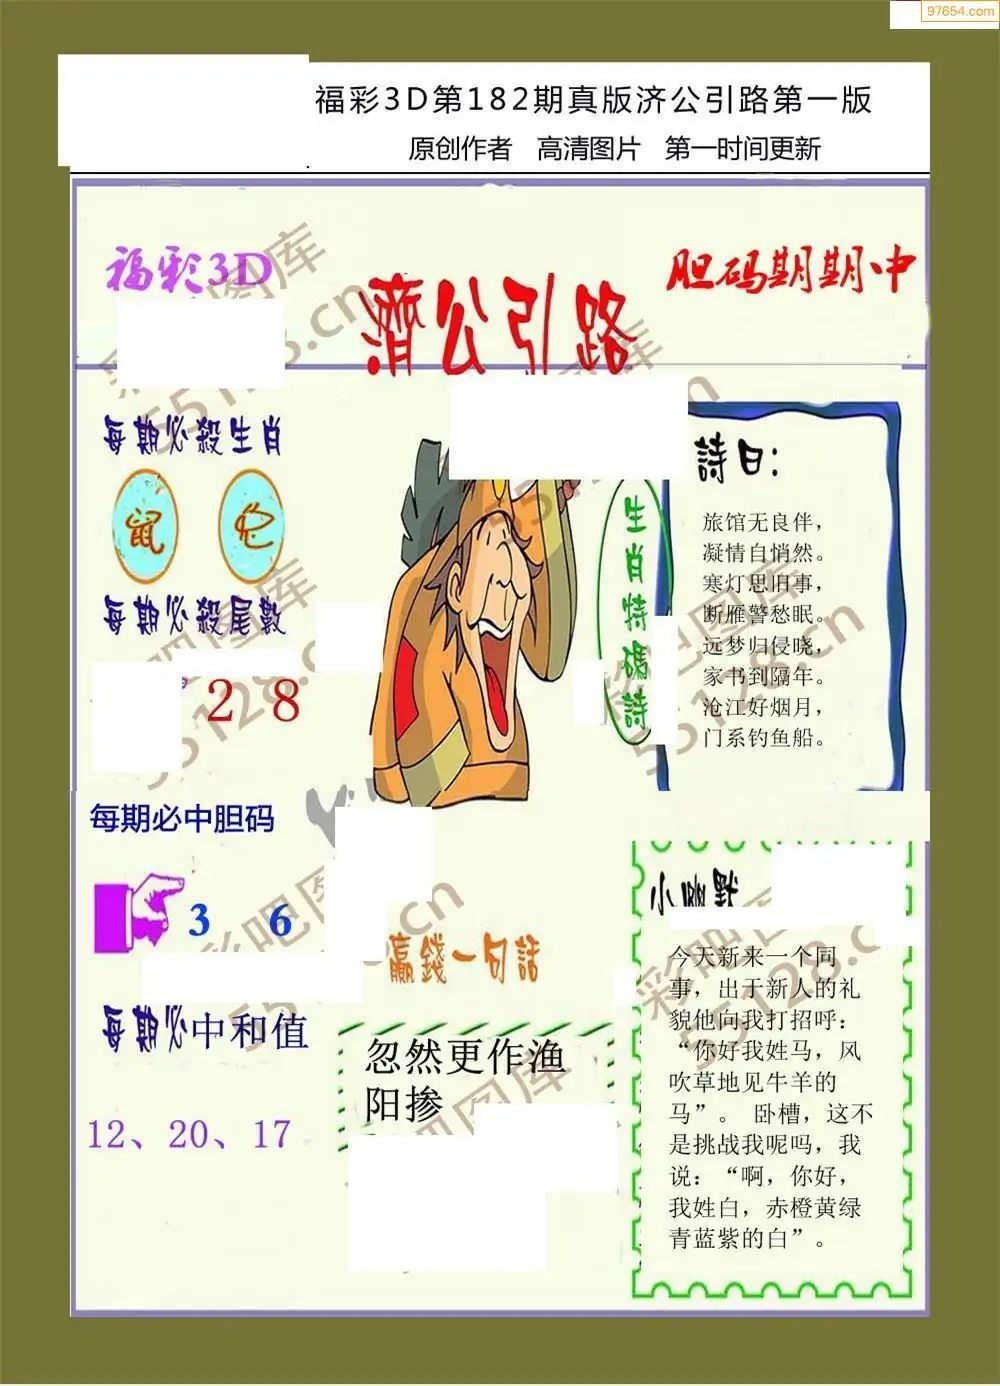 97654.com
福彩3D第182期真版济公引路第一版
原创作者 高清图片 第一时间更新
福彩3D
濟公引路
胆码期期中
每期必殺生肖
鼠
蛇
每期必殺尾數
2 8
每期必中胆码
3 6
每期必中和值
12、20、17
生肖特碼詩
詩曰：
旅馆无良伴，
凝情自悄然。
寒灯思旧事，
断雁警愁眠。
远梦归侵晓，
家书到隔年。
沧江好烟月，
门系钓鱼船。
赢錢一句話
忽然更作渔
阳掺
小幽默
今天新来一个同
事，出于新人的礼
貌他向我打招呼：
“你好我姓马，风
吹草地见牛羊的
马”。 卧槽，这不
是挑战我呢吗，我
说：“啊，你好，
我姓白，赤橙黄绿
青蓝紫的白”。
彩吧图库
55128.cn